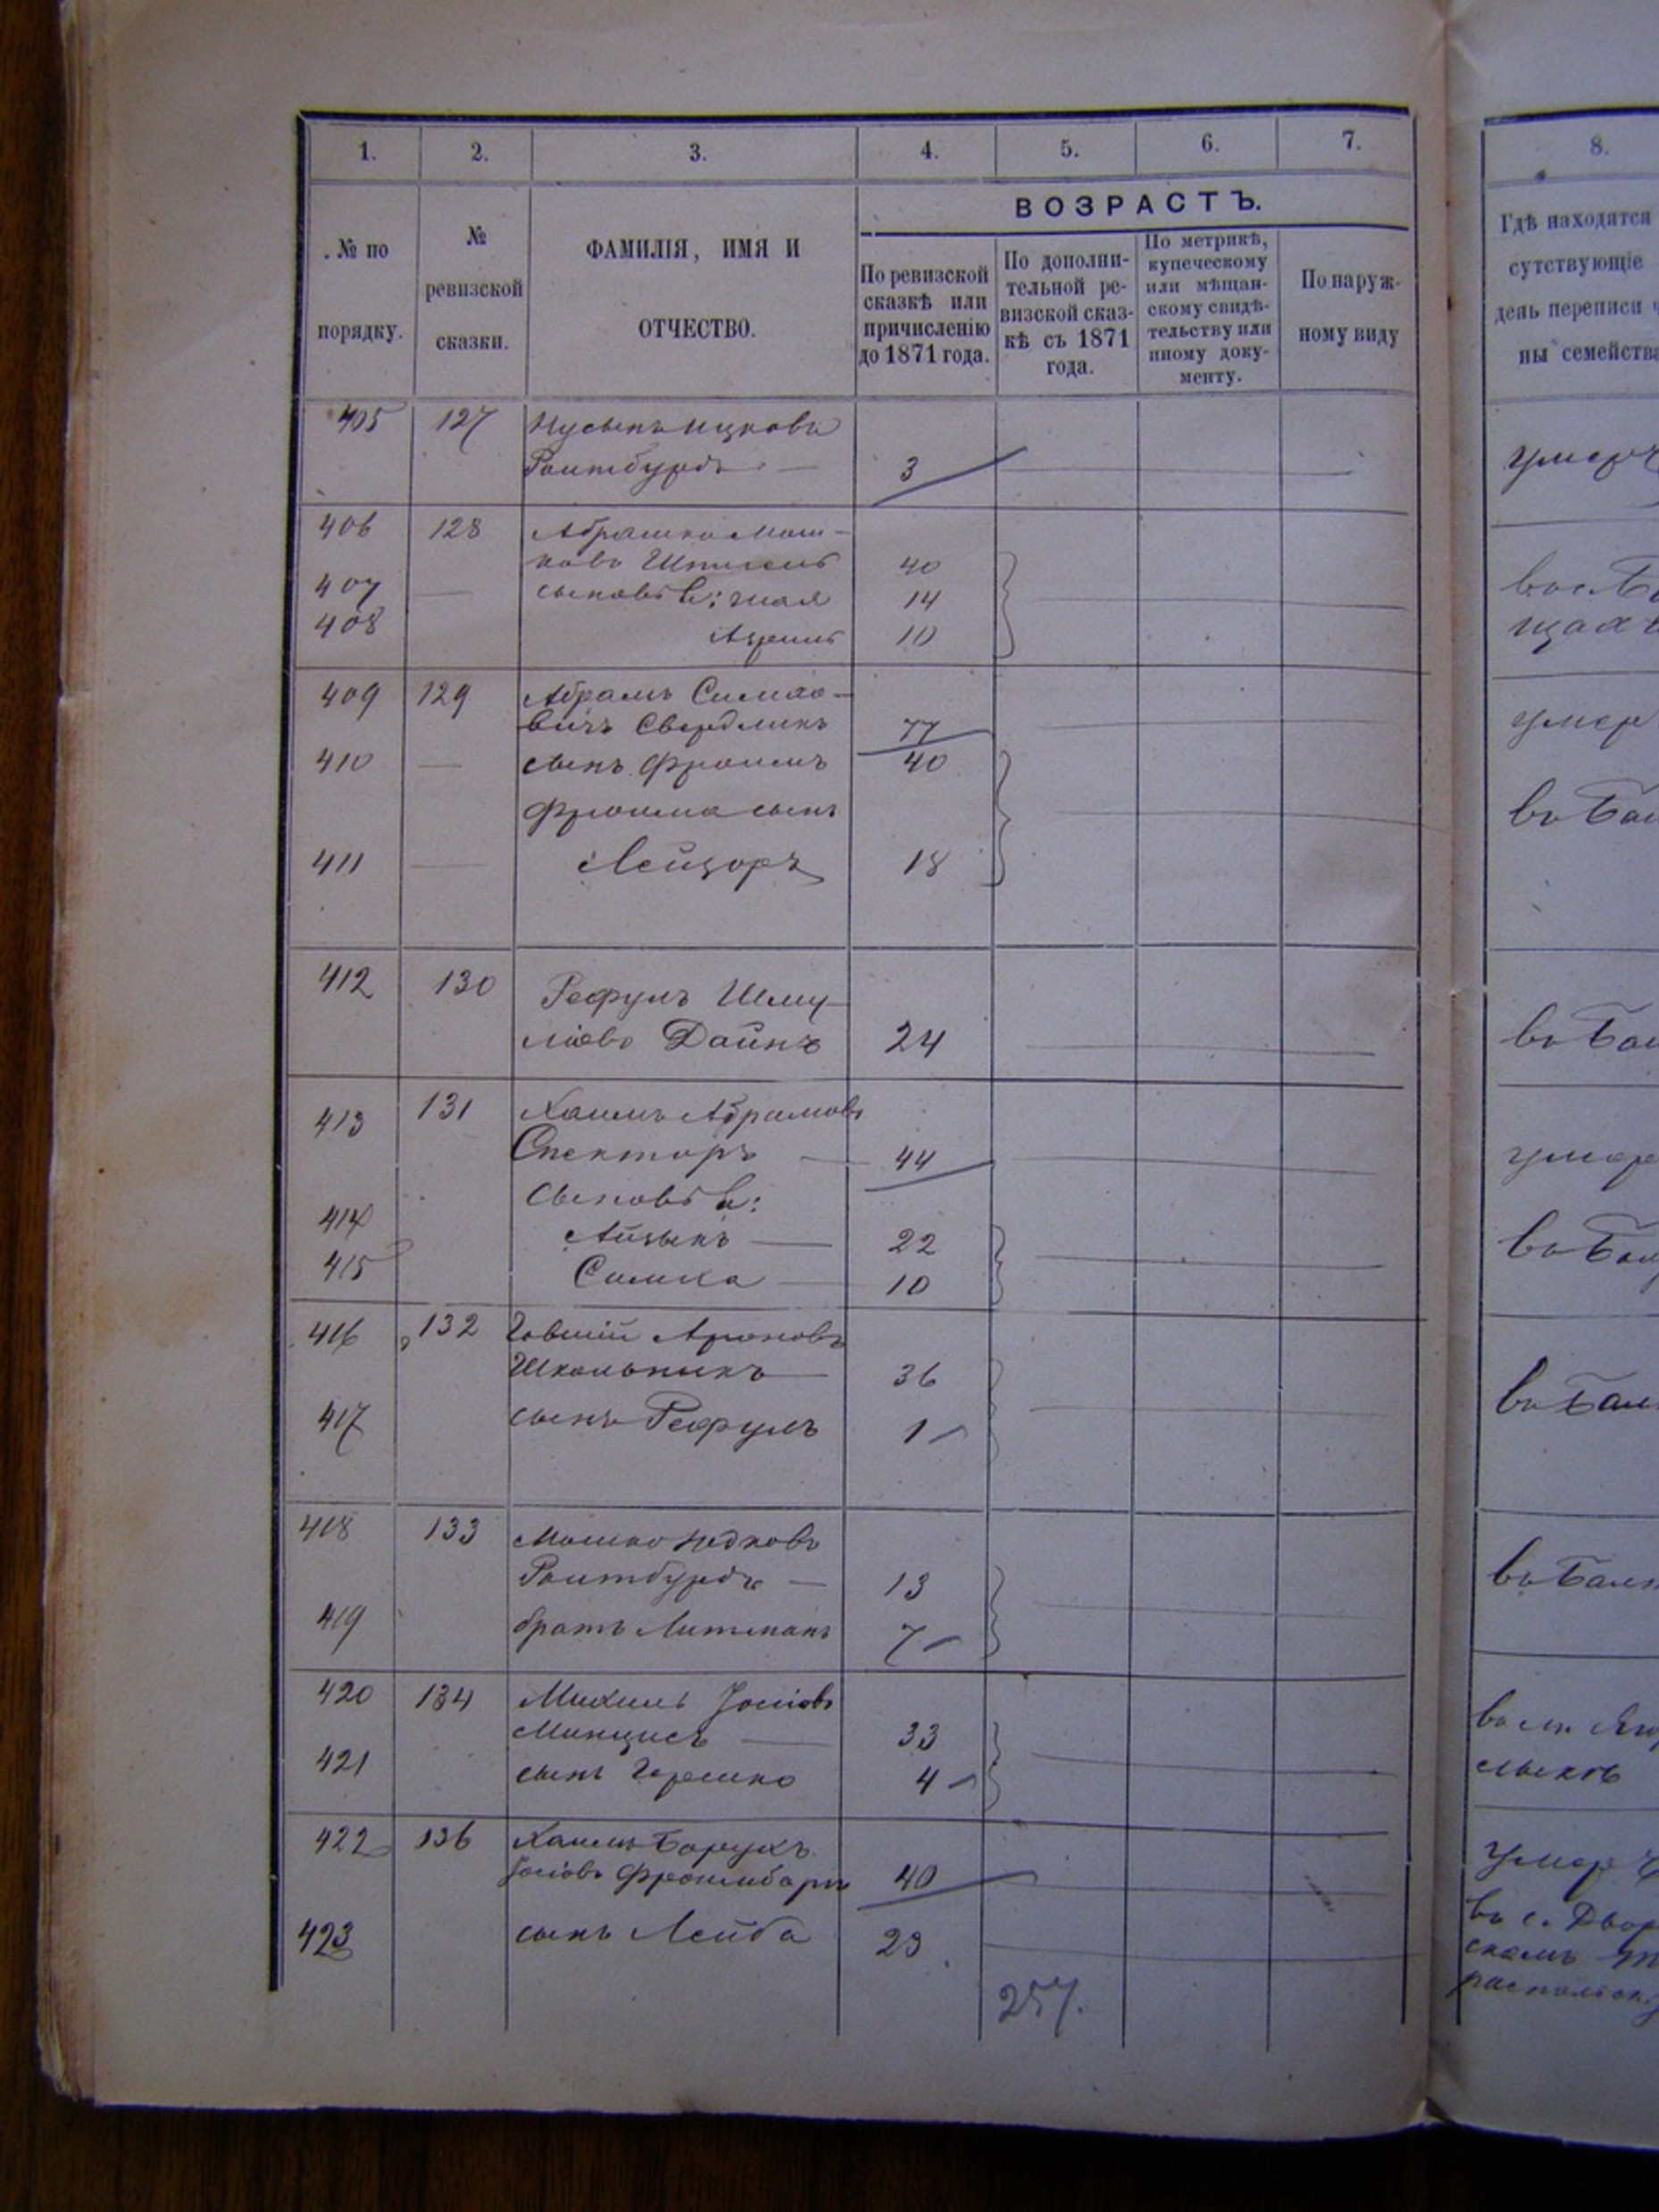 1. 2. 3. 4. 5. 6. 7. 8.
ВОЗРАСТЪ.
. № по порядку.
№ ревизской сказки.
ФАМИЛІЯ, ИМЯ И ОТЧЕСТВО.
По ревизской сказкѣ или причисленію до 1871 года.
По дополнительной ревизской сказкѣ съ 1871 года.
По метрикѣ, купеческому или мѣщанскому свидѣтельству или иному документу.
По наружному виду
Гдѣ находятся
сутствующіе
день переписи ч
ны семейства
405 127 Нусынъ Ицковъ
Роитбурдъ — 3 умеръ
406 128 Абрашко Мош-
ковъ 40
407 — сыновья: 14
408 10
409 129 Абрамъ Симхо-
вичъ Свердликъ 77 умер
410 — сынъ Фроимъ 40
Фроима сынъ въ Бал
411 — Лейзоръ 18
412 130 Рефулъ Шму-
ліовъ Даинъ 24 въ Бал
413 131 Хаимъ Абрамовъ
Спекторъ — 44 умер
Сыновья:
414 Айзыкъ — 22 въ Бал
415 Симха — 10
416 132 Говшій Ароновъ
Школьникъ — 36 въ Бал
417 сынъ Рефулъ 1
418 133 Мошко
Роитбурдъ — 13 въ Бал
419 братъ Литманъ 7
420 134 Михель Іосіовъ
Минцисъ — 33 въ м.
421 сынъ Гершко 4
422 136 Хаимъ Борухъ
Іосіовъ 40 умер
423 сынъ Лейба 23 въ с. Двор
257.